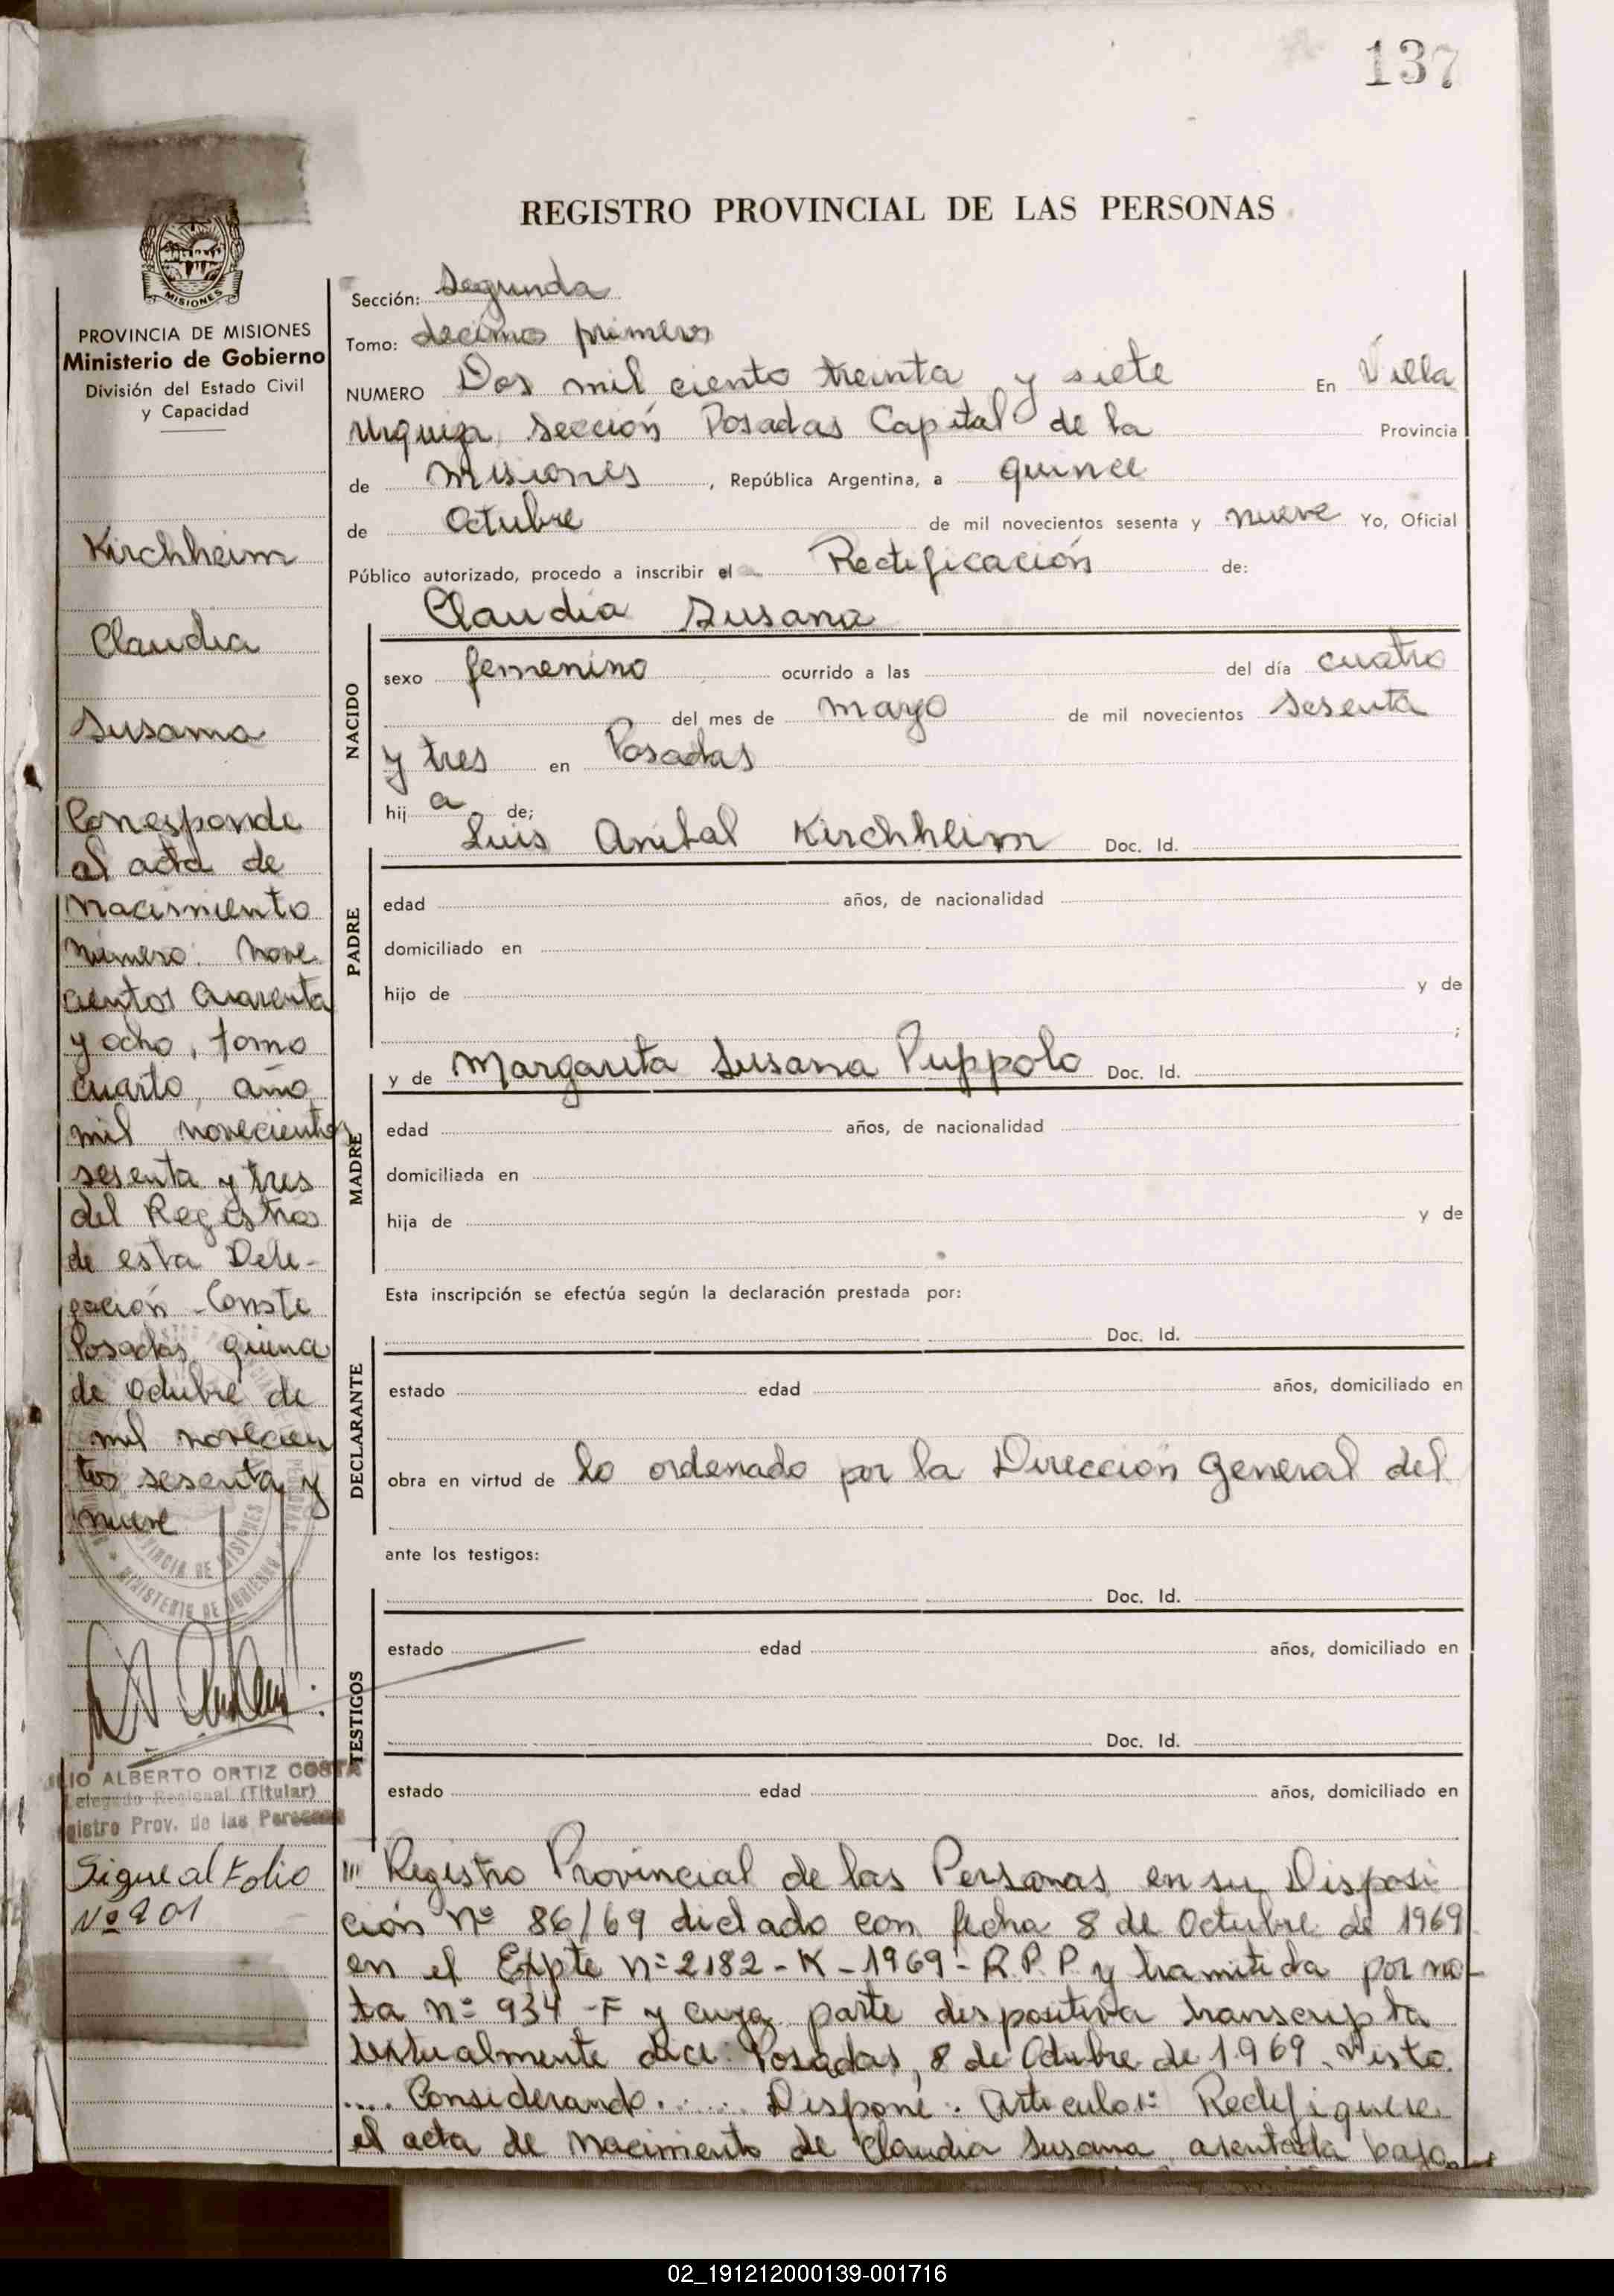 137
REGISTRO PROVINCIAL DE LAS PERSONAS
MISIONES
PROVINCIA DE MISIONES
Ministerio de Gobierno
División del Estado Civil
y Capacidad
Kirchheim
Claudia
Susana
Corresponde
al acta de
nacimiento
número. nove
cientos cuarenta
y ocho, tomo
cuarto, año
mil novecientos
sesenta y tres
del Registro
de esta Dele-
gación - Conste
Posadas, quince
de Octubre de
mil novecien
tos sesenta y
nueve
PROVINCIA DE MISIONES
MINISTERIO DE GOBIERNO
LIO ALBERTO ORTIZ COSTA
Delegado Regional (Titular)
gistro Prov. de las Personas
Sigue al Folio
Nº 201
Sección: Segunda
Tomo: decimo primero
NUMERO Dos mil ciento treinta y siete En Villa
Urquiza, Sección Posadas Capital de la Provincia
de Misiones, República Argentina, a quince
de Octubre de mil novecientos sesenta y nueve Yo, Oficial
Público autorizado, procedo a inscribir el Rectificación de:
Claudia Susana
NACIDO
sexo femenino ocurrido a las del día cuatro
del mes de mayo de mil novecientos sesenta
y tres en Posadas
hij a de;
Luis Anibal Kirchheim Doc. Id.
PADRE
edad años, de nacionalidad
domiciliado en
hijo de y de
;
y de Margarita Susana Puppolo Doc. Id.
MADRE
edad años, de nacionalidad
domiciliada en
hija de y de
Esta inscripción se efectúa según la declaración prestada por:
Doc. Id.
DECLARANTE
estado edad años, domiciliado en
obra en virtud de lo ordenado por la Dirección General del
ante los testigos:
Doc. Id.
TESTIGOS
estado edad años, domiciliado en
Doc. Id.
estado edad años, domiciliado en
/// Registro Provincial de las Personas, en su Disposi
ción Nº 86/69 dictado con fecha 8 de Octubre de 1969
en el Expte Nº 2182-K-1969-R.P.P. y tramitida por no-
ta nº 934-F y cuya parte dispositiva transcripta
textualmente dice: Posadas, 8 de Octubre de 1969. Visto
.... Considerando...... Dispone: Articulo 1º: Rectifiquese
el acta de nacimiento de Claudia Susana asentada bajo
02_191212000139-001716